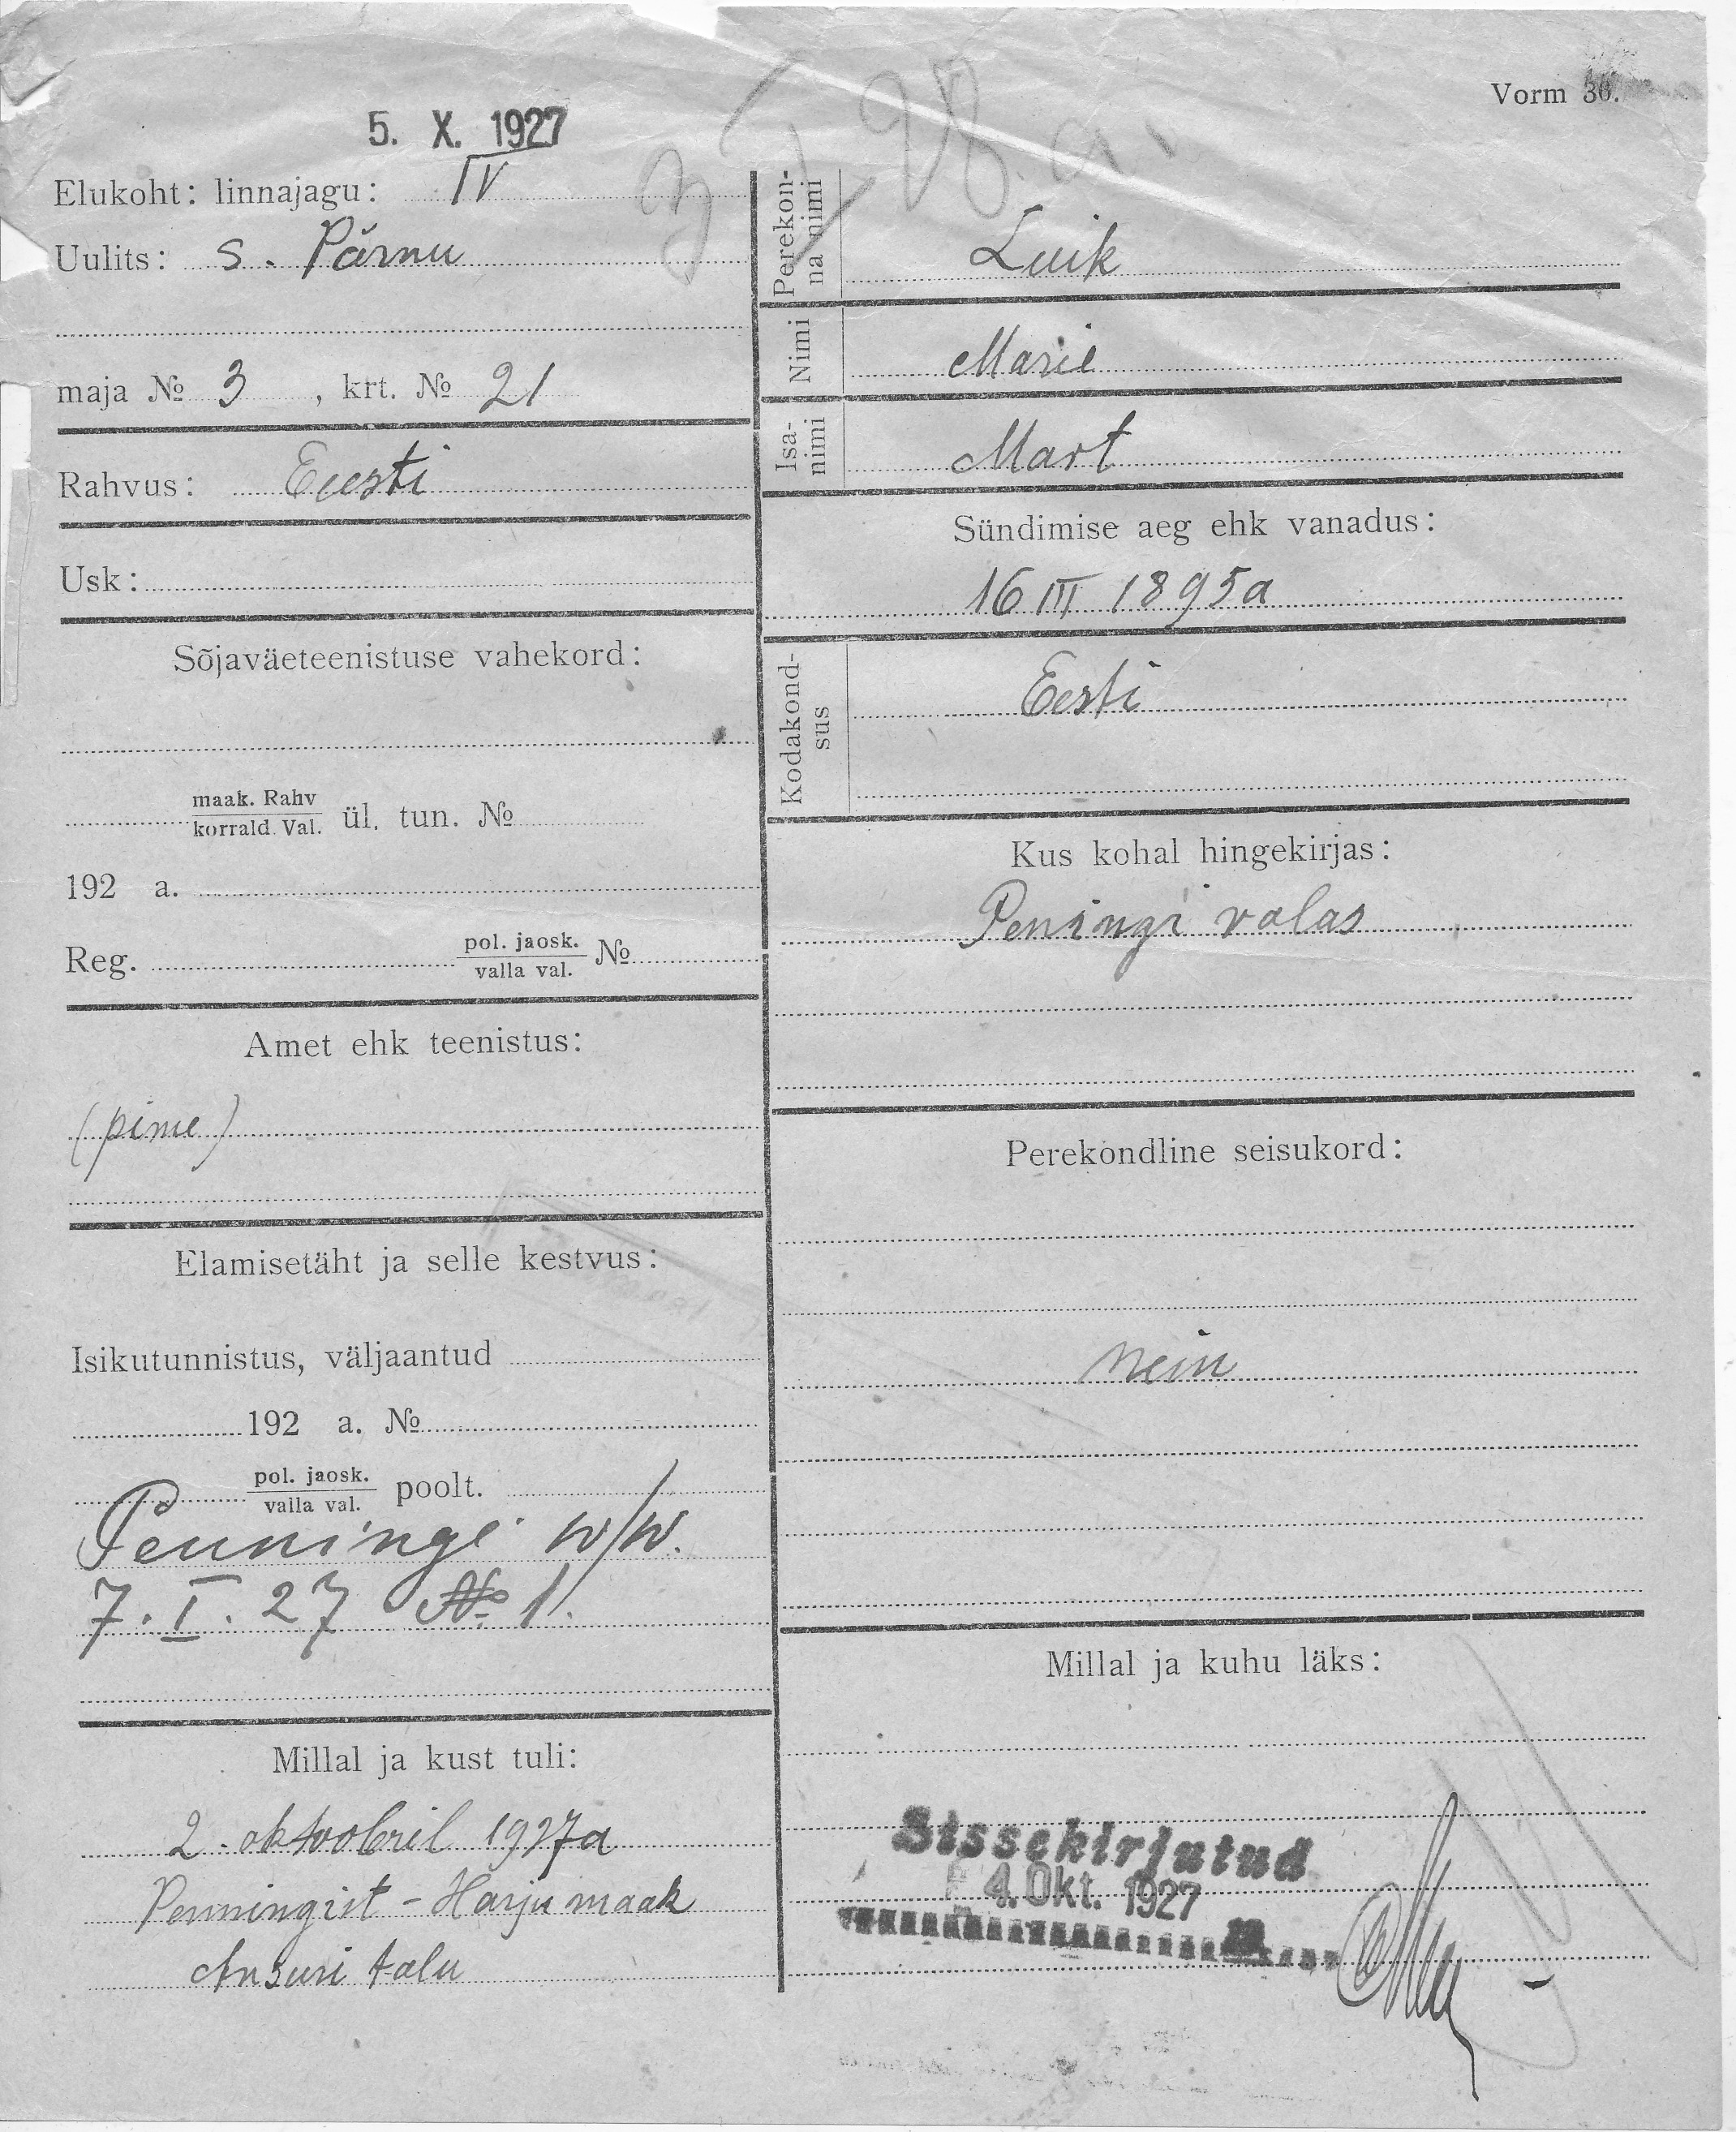 Vorm 36.
5. X. 1927
Elukoht: linnajagu: IV
Uulits: S. Pärnu
maja № 3, krt. № 21
Rahvus: Eesti
Usk:
Sõjaväeteenistuse vahekord:
maak. Rahv
korrald. Val. ül. tun. №
192 a.
Reg. pol. jaosk.
valla val. №
Amet ehk teenistus:
(pime)
Elamisetäht ja selle kestvus:
Isikutunnistus, väljaantud
192 a. №
pol. jaosk.
valla val. poolt.
Penningi w/w.
7. I. 27 № 1.
Millal ja kust tuli:
2. oktoobril 1927a
Penningist - Harju maak
Ansuri talu
Perekon-
na nimi
Luik
Nimi
Marie
Isa-
nimi
Mart
Sündimise aeg ehk vanadus:
16 III 1895a
Kodakond-
sus
Eesti
Kus kohal hingekirjas:
Peningi valas
Perekondline seisukord:
nein
Millal ja kuhu läks:
Sissekirjutud
4. Okt. 1927